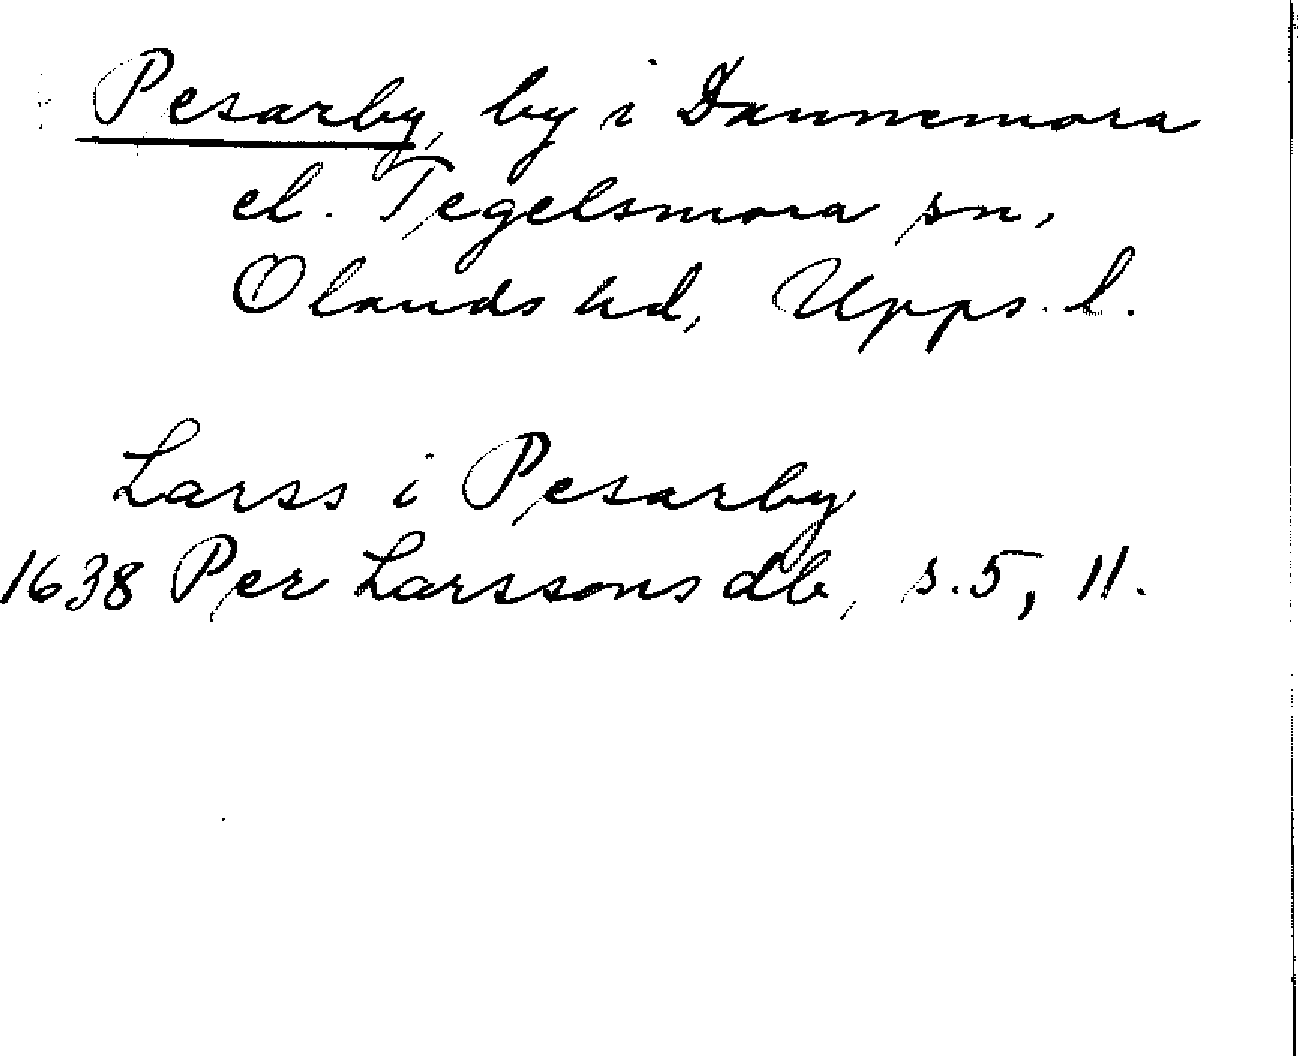 Pesarby, by i Dannemora
el. Tegelsmora sn,
Olands hd, Upps. l.
Larss i Pesarby
1638 Per Larssons db, s. 5, 11.